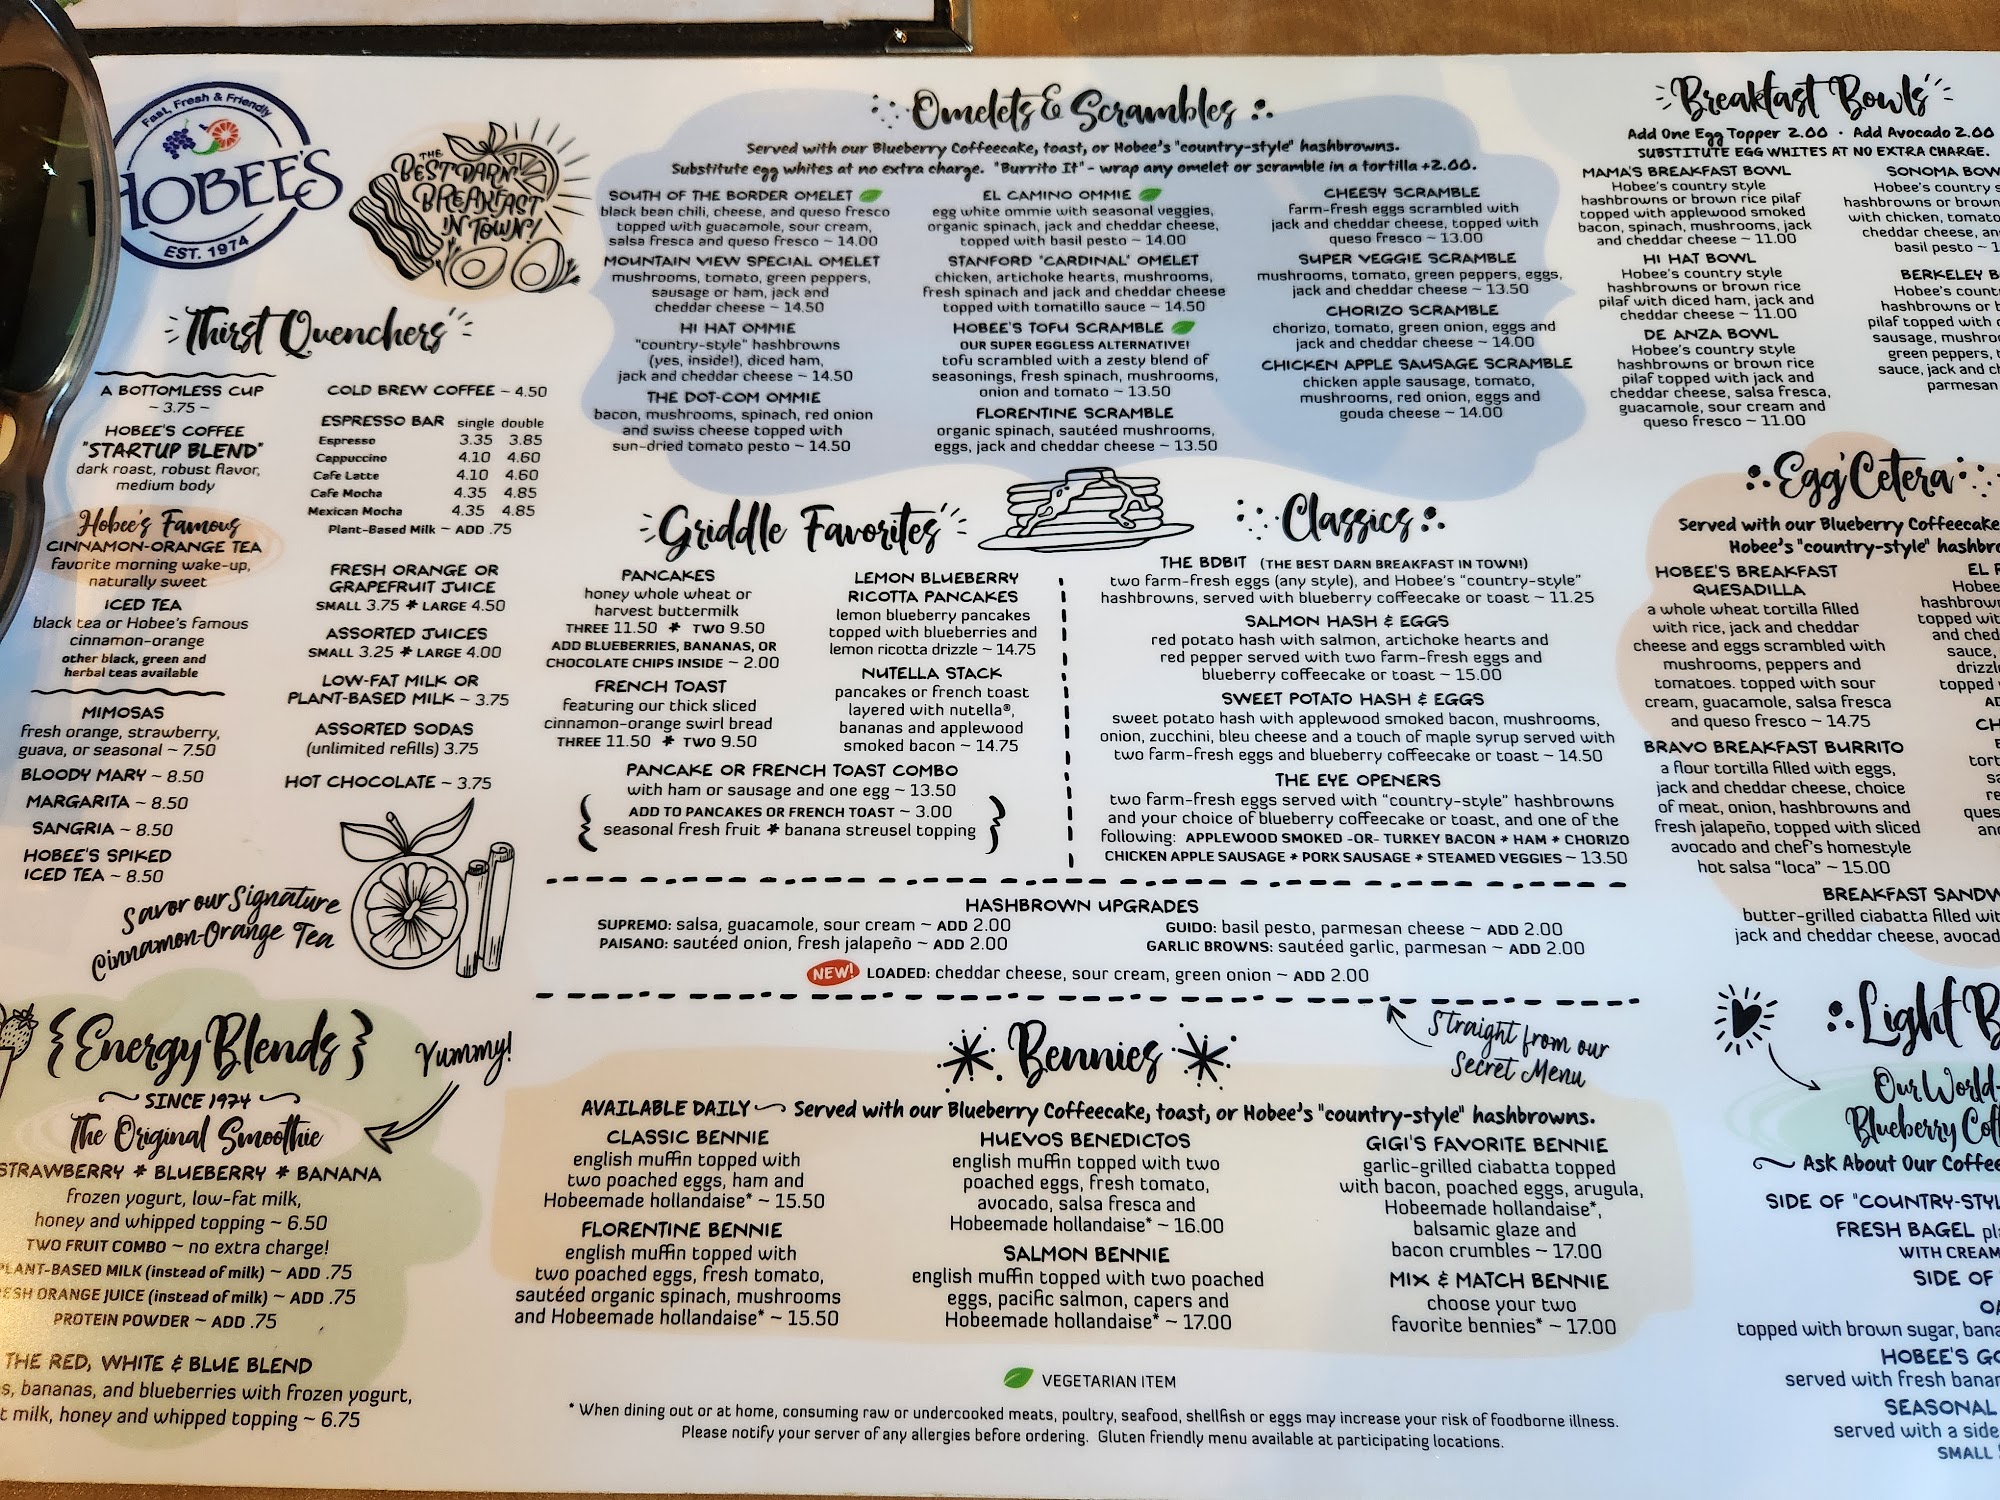 Fast, Fresh & Friendly
HOBEE'S
EST. 1974
THE
BEST DARN
BREAKFAST
IN TOWN!
Thirst Quenchers
A BOTTOMLESS CUP
~ 3.75 ~
HOBEE'S COFFEE
"STARTUP BLEND"
dark roast, robust flavor,
medium body
Hobee's Famous
CINNAMON-ORANGE TEA
favorite morning wake-up,
naturally sweet
ICED TEA
black tea or Hobee's famous
cinnamon-orange
other black, green and
herbal teas available
MIMOSAS
fresh orange, strawberry,
guava, or seasonal ~ 7.50
BLOODY MARY ~ 8.50
MARGARITA ~ 8.50
SANGRIA ~ 8.50
HOBEE'S SPIKED
ICED TEA ~ 8.50
COLD BREW COFFEE ~ 4.50
ESPRESSO BAR single double
Espresso 3.35 3.85
Cappuccino 4.10 4.60
Cafe Latte 4.10 4.60
Cafe Mocha 4.35 4.85
Mexican Mocha 4.35 4.85
Plant-Based Milk ~ ADD .75
FRESH ORANGE OR
GRAPEFRUIT JUICE
SMALL 3.75 * LARGE 4.50
ASSORTED JUICES
SMALL 3.25 * LARGE 4.00
LOW-FAT MILK OR
PLANT-BASED MILK ~ 3.75
ASSORTED SODAS
(unlimited refills) 3.75
HOT CHOCOLATE ~ 3.75
Savor our Signature
Cinnamon-Orange Tea
{Energy Blends}
Yummy!
SINCE 1974
The Original Smoothie
STRAWBERRY * BLUEBERRY * BANANA
frozen yogurt, low-fat milk,
honey and whipped topping ~ 6.50
TWO FRUIT COMBO ~ no extra charge!
PLANT-BASED MILK (instead of milk) ~ ADD .75
ESH ORANGE JUICE (instead of milk) ~ ADD .75
PROTEIN POWDER ~ ADD .75
THE RED, WHITE & BLUE BLEND
s, bananas, and blueberries with frozen yogurt,
t milk, honey and whipped topping ~ 6.75
Omelets & Scrambles
Served with our Blueberry Coffeecake, toast, or Hobee's "country-style" hashbrowns.
Substitute egg whites at no extra charge. "Burrito It" - wrap any omelet or scramble in a tortilla +2.00.
SOUTH OF THE BORDER OMELET
black bean chili, cheese, and queso fresco
topped with guacamole, sour cream,
salsa fresca and queso fresco ~ 14.00
MOUNTAIN VIEW SPECIAL OMELET
mushrooms, tomato, green peppers,
sausage or ham, jack and
cheddar cheese ~ 14.50
HI HAT OMMIE
"country-style" hashbrowns
(yes, inside!), diced ham,
jack and cheddar cheese ~ 14.50
THE DOT-COM OMMIE
bacon, mushrooms, spinach, red onion
and swiss cheese topped with
sun-dried tomato pesto ~ 14.50
EL CAMINO OMMIE
egg white ommie with seasonal veggies,
organic spinach, jack and cheddar cheese,
topped with basil pesto ~ 14.00
STANFORD "CARDINAL" OMELET
chicken, artichoke hearts, mushrooms,
fresh spinach and jack and cheddar cheese
topped with tomatillo sauce ~ 14.50
HOBEE'S TOFU SCRAMBLE
OUR SUPER EGGLESS ALTERNATIVE!
tofu scrambled with a zesty blend of
seasonings, fresh spinach, mushrooms,
onion and tomato ~ 13.50
FLORENTINE SCRAMBLE
organic spinach, sautéed mushrooms,
eggs, jack and cheddar cheese ~ 13.50
CHEESY SCRAMBLE
farm-fresh eggs scrambled with
jack and cheddar cheese, topped with
queso fresco ~ 13.00
SUPER VEGGIE SCRAMBLE
mushrooms, tomato, green peppers, eggs,
jack and cheddar cheese ~ 13.50
CHORIZO SCRAMBLE
chorizo, tomato, green onion, eggs and
jack and cheddar cheese ~ 14.00
CHICKEN APPLE SAUSAGE SCRAMBLE
chicken apple sausage, tomato,
mushrooms, red onion, eggs and
gouda cheese ~ 14.00
Griddle Favorites
PANCAKES
honey whole wheat or
harvest buttermilk
THREE 11.50 * TWO 9.50
ADD BLUEBERRIES, BANANAS, OR
CHOCOLATE CHIPS INSIDE ~ 2.00
FRENCH TOAST
featuring our thick sliced
cinnamon-orange swirl bread
THREE 11.50 * TWO 9.50
LEMON BLUEBERRY
RICOTTA PANCAKES
lemon blueberry pancakes
topped with blueberries and
lemon ricotta drizzle ~ 14.75
NUTELLA STACK
pancakes or french toast
layered with nutella®,
bananas and applewood
smoked bacon ~ 14.75
PANCAKE OR FRENCH TOAST COMBO
with ham or sausage and one egg ~ 13.50
ADD TO PANCAKES OR FRENCH TOAST ~ 3.00
seasonal fresh fruit * banana streusel topping
Classics
THE BDBIT (THE BEST DARN BREAKFAST IN TOWN!)
two farm-fresh eggs (any style), and Hobee's "country-style"
hashbrowns, served with blueberry coffeecake or toast ~ 11.25
SALMON HASH & EGGS
red potato hash with salmon, artichoke hearts and
red pepper served with two farm-fresh eggs and
blueberry coffeecake or toast ~ 15.00
SWEET POTATO HASH & EGGS
sweet potato hash with applewood smoked bacon, mushrooms,
onion, zucchini, bleu cheese and a touch of maple syrup served with
two farm-fresh eggs and blueberry coffeecake or toast ~ 14.50
THE EYE OPENERS
two farm-fresh eggs served with "country-style" hashbrowns
and your choice of blueberry coffeecake or toast, and one of the
following: APPLEWOOD SMOKED -OR- TURKEY BACON * HAM * CHORIZO
CHICKEN APPLE SAUSAGE * PORK SAUSAGE * STEAMED VEGGIES ~ 13.50
HASHBROWN UPGRADES
SUPREMO: salsa, guacamole, sour cream ~ ADD 2.00
PAISANO: sautéed onion, fresh jalapeño ~ ADD 2.00
GUIDO: basil pesto, parmesan cheese ~ ADD 2.00
GARLIC BROWNS: sautéed garlic, parmesan ~ ADD 2.00
NEW! LOADED: cheddar cheese, sour cream, green onion ~ ADD 2.00
Straight from our
Secret Menu
Bennies
AVAILABLE DAILY Served with our Blueberry Coffeecake, toast, or Hobee's "country-style" hashbrowns.
CLASSIC BENNIE
english muffin topped with
two poached eggs, ham and
Hobeemade hollandaise* ~ 15.50
FLORENTINE BENNIE
english muffin topped with
two poached eggs, fresh tomato,
sautéed organic spinach, mushrooms
and Hobeemade hollandaise* ~ 15.50
HUEVOS BENEDICTOS
english muffin topped with two
poached eggs, fresh tomato,
avocado, salsa fresca and
Hobeemade hollandaise* ~ 16.00
SALMON BENNIE
english muffin topped with two poached
eggs, pacific salmon, capers and
Hobeemade hollandaise* ~ 17.00
GIGI'S FAVORITE BENNIE
garlic-grilled ciabatta topped
with bacon, poached eggs, arugula,
Hobeemade hollandaise*,
balsamic glaze and
bacon crumbles ~ 17.00
MIX & MATCH BENNIE
choose your two
favorite bennies* ~ 17.00
VEGETARIAN ITEM
* When dining out or at home, consuming raw or undercooked meats, poultry, seafood, shellfish or eggs may increase your risk of foodborne illness.
Please notify your server of any allergies before ordering. Gluten friendly menu available at participating locations.
Breakfast Bowls
Add One Egg Topper 2.00 · Add Avocado 2.00
SUBSTITUTE EGG WHITES AT NO EXTRA CHARGE.
MAMA'S BREAKFAST BOWL
Hobee's country style
hashbrowns or brown rice pilaf
topped with applewood smoked
bacon, spinach, mushrooms, jack
and cheddar cheese ~ 11.00
HI HAT BOWL
Hobee's country style
hashbrowns or brown rice
pilaf with diced ham, jack and
cheddar cheese ~ 11.00
DE ANZA BOWL
Hobee's country style
hashbrowns or brown rice
pilaf topped with jack and
cheddar cheese, salsa fresca,
guacamole, sour cream and
queso fresco ~ 11.00
SONOMA BOW
Hobee's country s
hashbrowns or brown
with chicken, tomato
cheddar cheese, an
basil pesto ~ 1
BERKELEY B
Hobee's count
hashbrowns or b
pilaf topped with c
sausage, mushroo
green peppers, t
sauce, jack and ch
parmesan
Egg'Cetera
Served with our Blueberry Coffeecake
Hobee's "country-style" hashbro
HOBEE'S BREAKFAST
QUESADILLA
a whole wheat tortilla filled
with rice, jack and cheddar
cheese and eggs scrambled with
mushrooms, peppers and
tomatoes. topped with sour
cream, guacamole, salsa fresca
and queso fresco ~ 14.75
BRAVO BREAKFAST BURRITO
a flour tortilla filled with eggs,
jack and cheddar cheese, choice
of meat, onion, hashbrowns and
fresh jalapeño, topped with sliced
avocado and chef's homestyle
hot salsa "loca" ~ 15.00
EL
Hobee
hashbrown
topped wit
and ched
sauce,
drizzl
topped
AD
CH
tort
sa
re
ques
an
BREAKFAST SANDW
butter-grilled ciabatta filled wit
jack and cheddar cheese, avocad
Light B
Our World-
Blueberry Coff
Ask About Our Coffee
SIDE OF "COUNTRY-STYL
FRESH BAGEL pla
WITH CREAM
SIDE OF
OA
topped with brown sugar, bana
HOBEE'S GO
served with fresh banan
SEASONAL
served with a side
SMALL